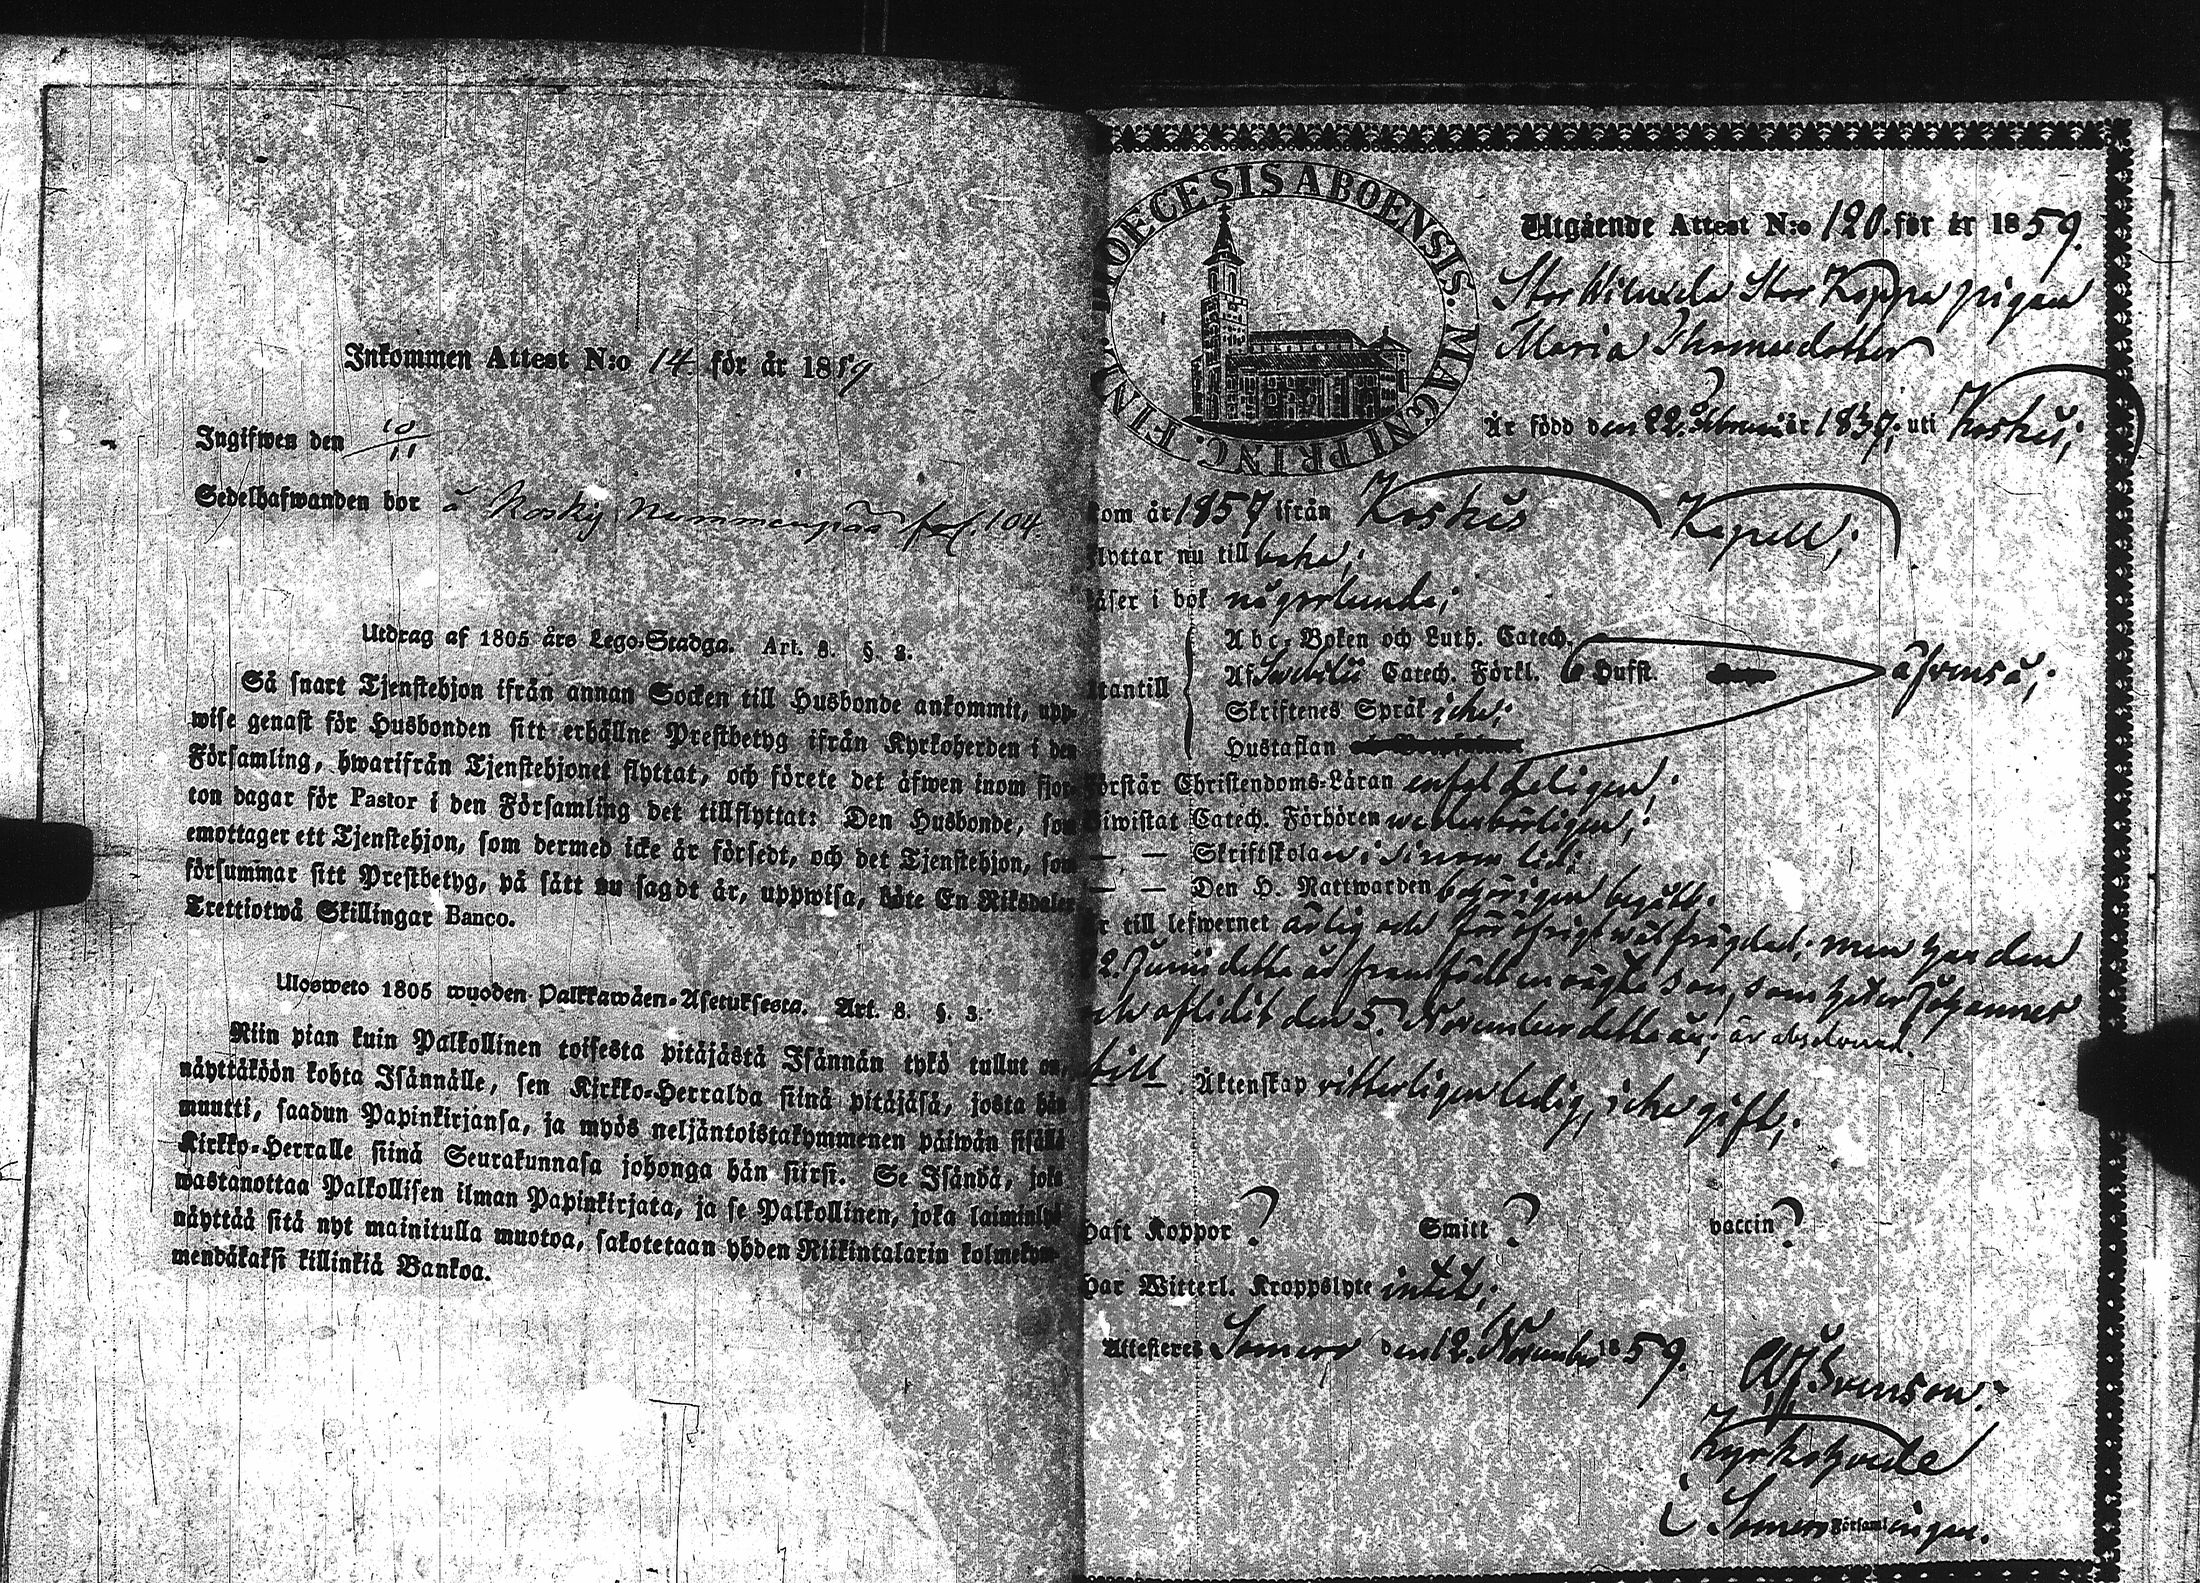 Inkommen Attest N:o 14. för år 1859
Ingifwen den 10/11
Sedelhafwanden bor å Koskis Nummenpää fol. 104.
Utdrag af 1805 års Lego-Stadga. Art. 8. §. 3.
Så snart Tjenstehjon ifrån annan Socken till Husbonde ankommit, upp-
wise genast för Husbonden sitt erhållne Prestbetyg ifrån Kyrkoherden i den
Församling, hwarifrån Tjenstehjonet flyttat, och förete det äfwen inom fjor-
ton dagar för Pastor i den Församling det tillflyttat: Den Husbonde, som
emottager ett Tjenstehjon, som dermed icke är försedt, och det Tjenstehjon, som
försummar sitt Prestbetyg, på sätt nu sagdt är, uppwisa, böte En Riksdaler
Trettiotwå Skillingar Banco.
Ulosweto 1805 wuoden Palkkawäen-Asetuksesta. Art. 8. §. 3.
Niin pian kuin Palkollinen toisesta pitäjästä Isännän tykö tullut on,
näyttäköön kohta Isännälle, sen Kirkko-Herralda siinä pitäjäsä, josta hän
muutti, saadun Papinkirjansa, ja myös neljäntoistakymmenen päiwän sisällä
Kirkko-Herralle siinä Seurakunnasa johonga hän siirsi. Se Isändä, joka
wastanottaa Palkollisen ilman Papinkirjata, ja se Palkollinen, joka laiminlyö
näyttää sitä nyt mainitulla muotoa, sakotetaan yhden Riikintalarin kolmekym-
mendäkaksi killinkiä Bankoa.
DIOECESIS ABOENSIS. MAGNI PRINC. FINL.
Utgående Attest N:o 120. för år 1859.
Stor Koppa pigan
Maria Thomasdotter
Är född den 22. Februarii år 1837; uti Koskis;
kom år 1857 ifrån Koskis Kapell;
flyttar nu till baka;
läser i bok någorlunda;
Abc-Boken och Luth. Catech.
utantill Af Swebilii Catech. Förkl. Hufst. äfvenså;
Skriftenes Språk icke;
Hustaflan
förstår Christendoms-Läran enfaldeligen;
biwistat Catech. Förhören wederbörligen;
— — Skriftskolan i sinom tid;
— — Den H. Nattwarden behörigen begått;
är till lefwernet ärlig och för öfrigt wälfrägdad; men har den
2. Junii detta år framfödt en oägta son, som heter Johannes
och aflidit den 5. November detta år; är absolverad.
till Äktenskap witterligen ledig, icke gift;
haft Koppor? Smitt? vaccin?
har Witterl. Kroppslyte intet;
Attesteras Somero den 12. November 1859.
Svenson.
Kyrkoherde
i Somero Församlingen.